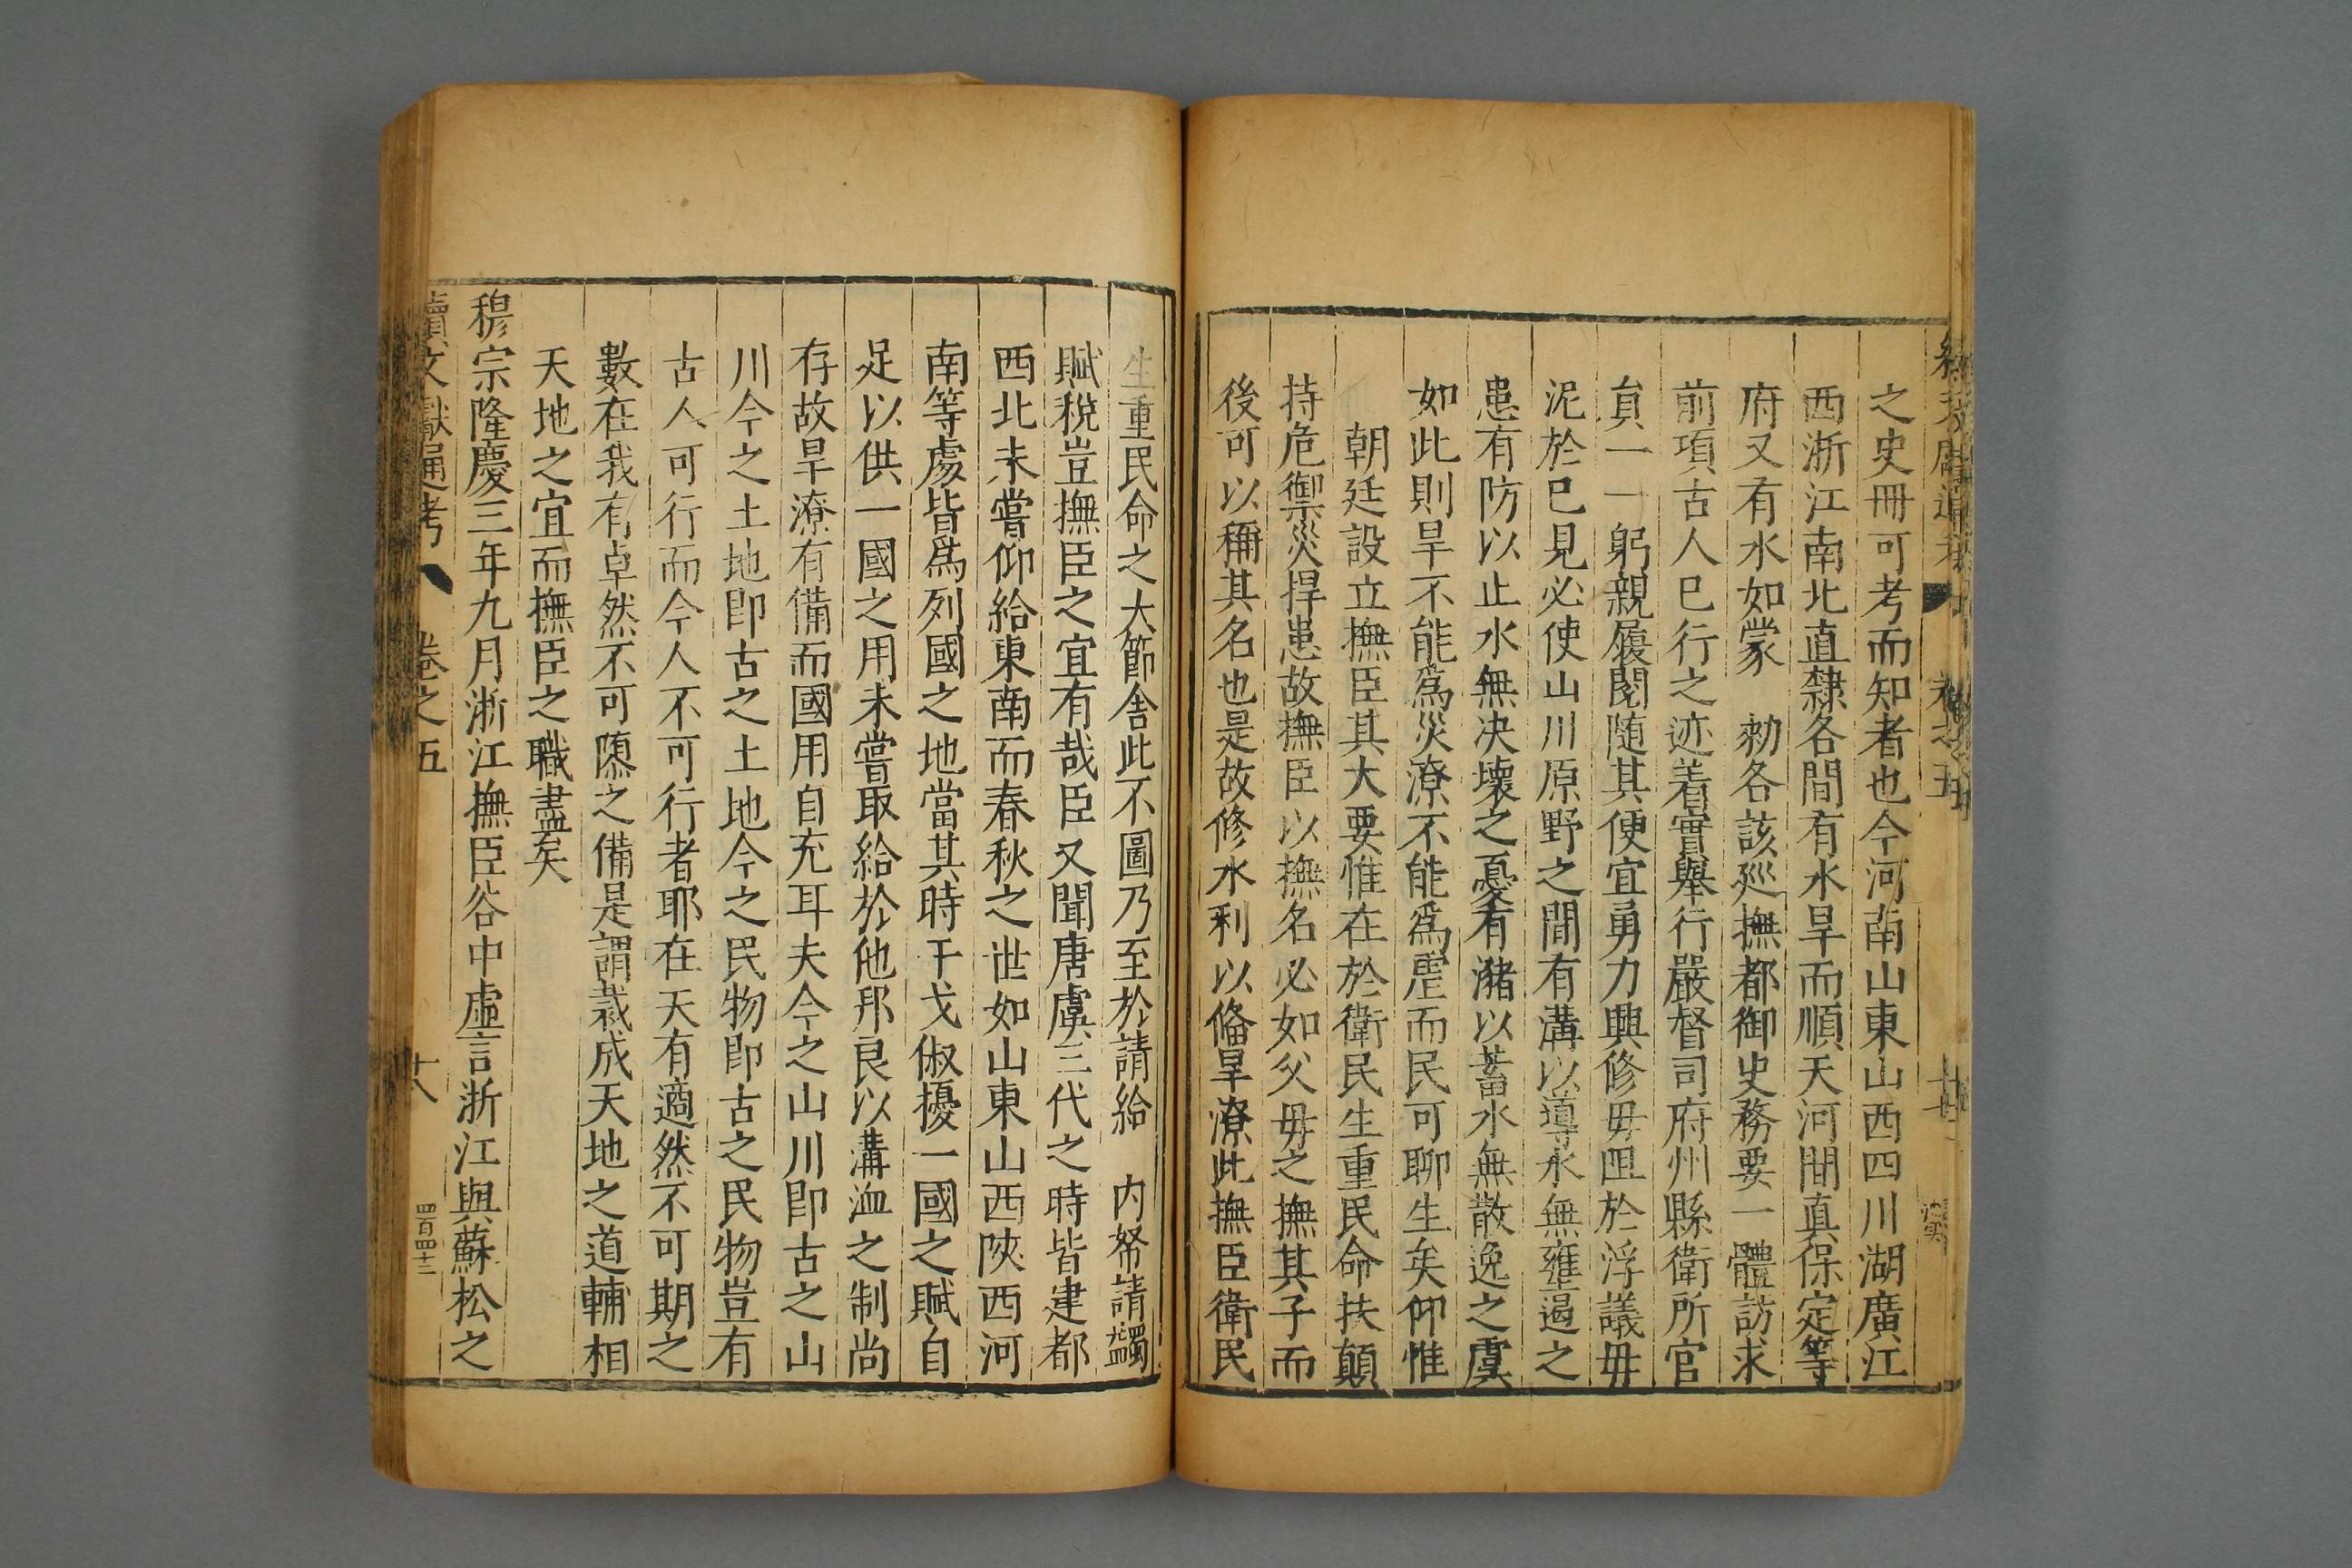 之史冊可考而知者也今河南山東山西四川湖廣江
西浙江南北直隸各間有水旱而順天河間真保定等
府又有水如蒙 勑各該廵撫都御史務要一體訪求
前項古人巳行之迹着實舉行嚴督司府州縣衛所官
員一一躬親履閱随其便宜勇力興修毋阻於浮議毋
泥於巳見必使山川原野之間有溝以導水無壅遏之
患有防以止水無决壞之憂有瀦以蓄水無散逸之虞
如此則旱不能爲災潦不能爲虐而民可聊生矣仰惟
朝廷設立撫臣其大要惟在於衛民生重民命扶顛
持危禦災捍患故撫臣以撫名必如父毋之撫其子而
後可以稱其名也是故修水利以俻旱潦此撫臣衛民
生重民命之大節舍此不圖乃至於請給 内帑請蠲
賦稅豈撫臣之宜有哉臣又聞唐虞三代之時皆建都
西北未嘗仰給東南而春秋之世如山東山西陝西河
南等處皆爲列國之地當其時干戈俶擾一國之賦自
足以供一國之用未嘗取給於他邦良以溝洫之制尚
存故旱潦有備而國用自充耳夫今之山川即古之山
川今之土地即古之土地今之民物即古之民物豈有
古人可行而今人不可行者耶在天有適然不可期之
數在我有卓然不可隳之備是謂裁成天地之道輔相
天地之宜而撫臣之職盡矣
穆宗隆慶三年九月浙江撫臣谷中虛言浙江與蘇松之
續文獻通考 卷之五 十八 四百四十二